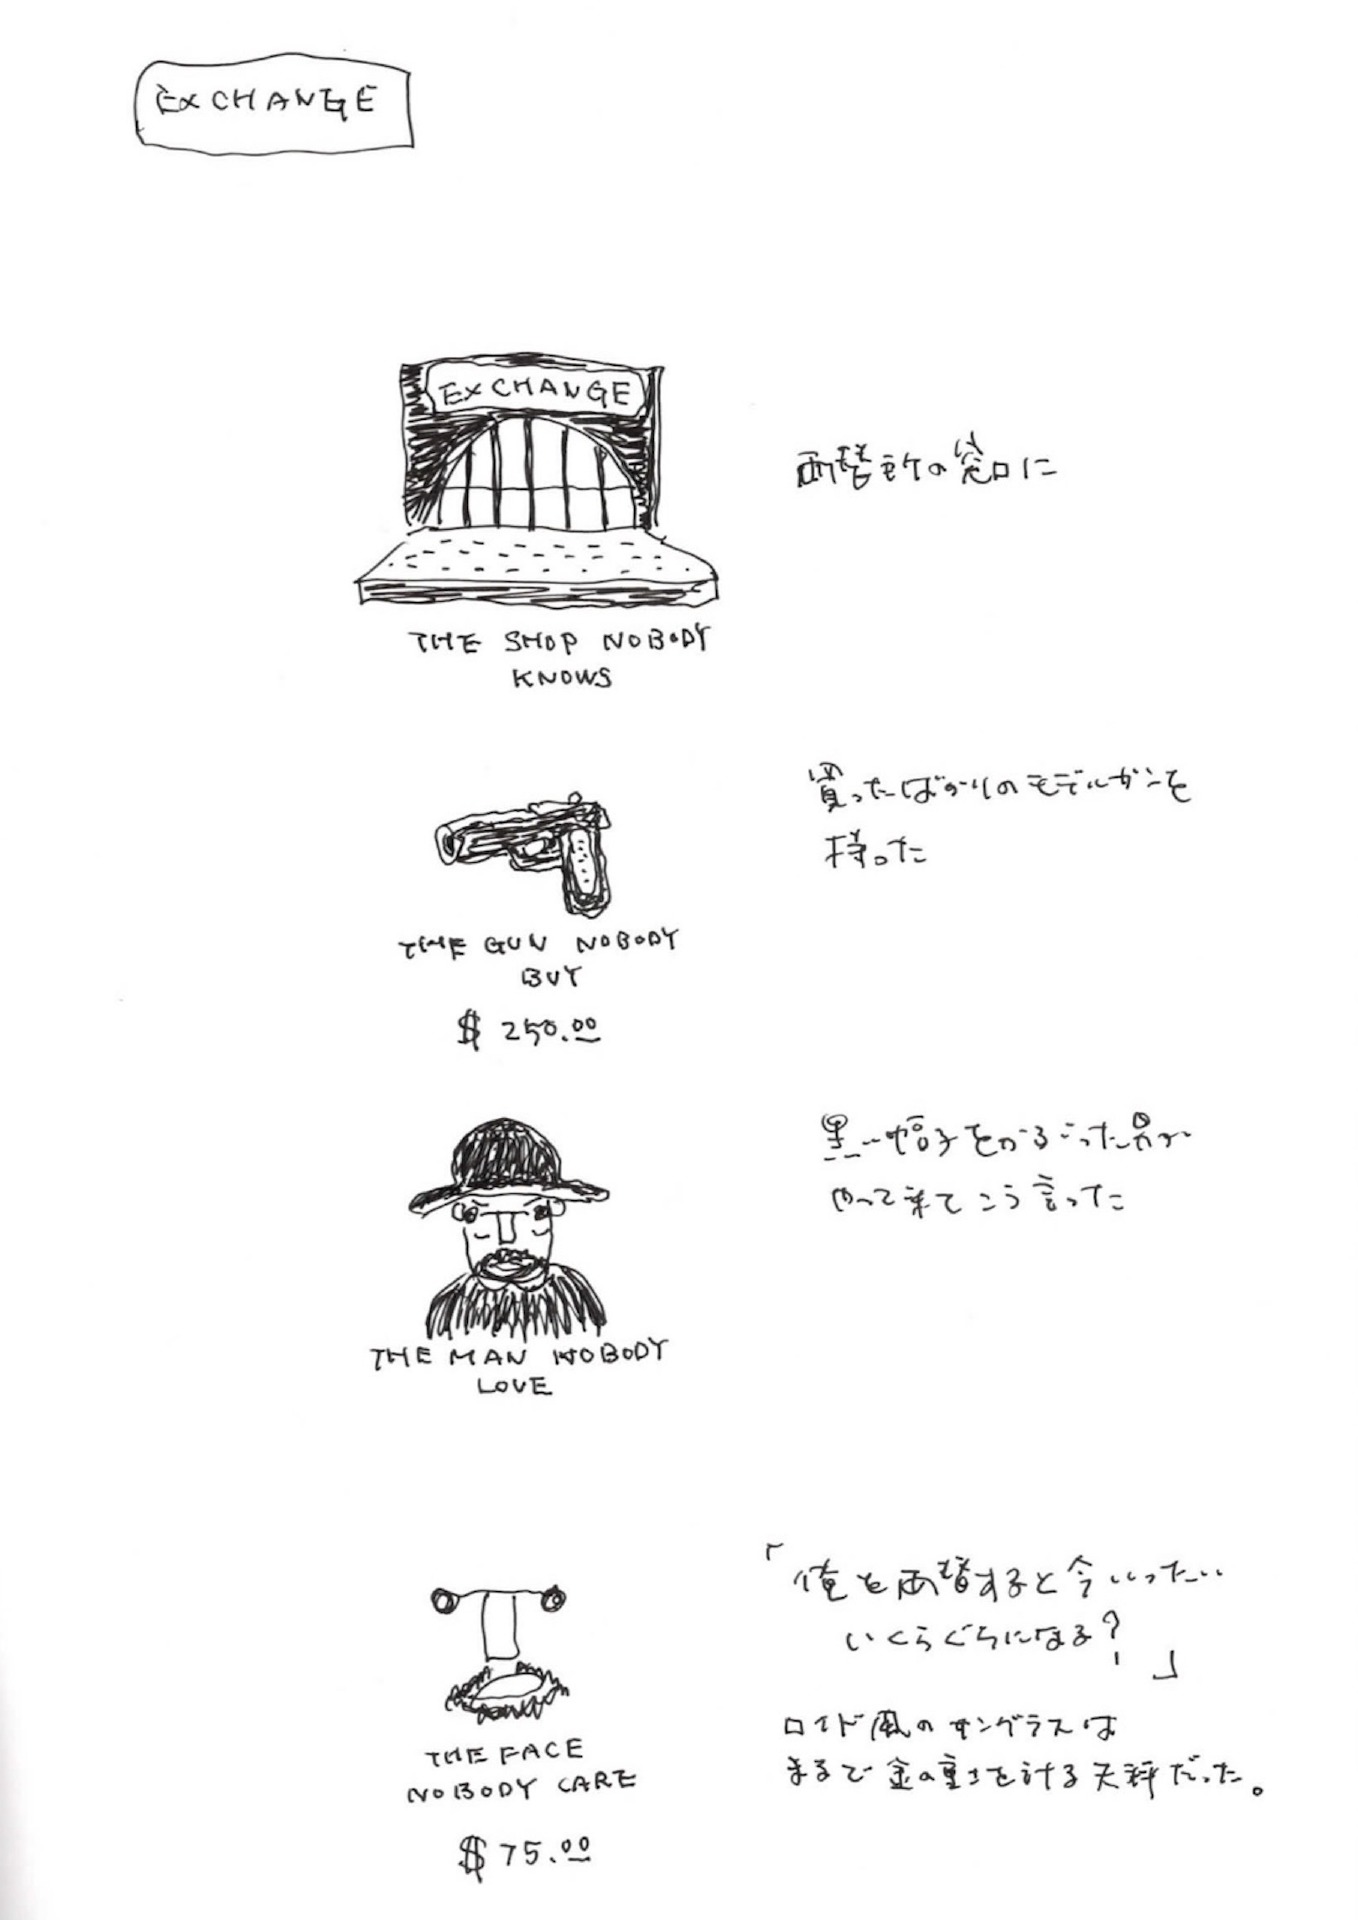 EXCHANGE
EXCHANGE
THE SHOP NOBODY
KNOWS
両替所の窓口に
THE GUN NOBODY
BUY
$ 250.00
買ったばかりのモデルガンを
持った
THE MAN NOBODY
LOVE
黒い帽子をかぶった男が
やって来てこう言った
THE FACE
NOBODY CARE
$ 75.00
「俺を両替すると今いったい
いくらぐらいになる?」
ロイド風のサングラスは
まるで金の重さを計る天秤だった。